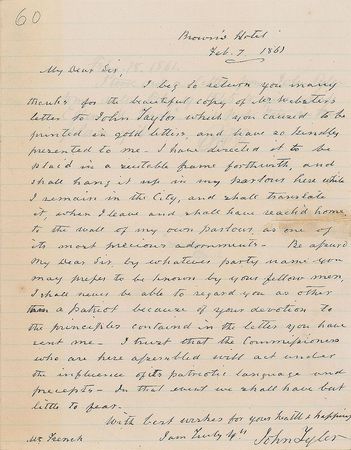 60
Brown's Hotel
Feb. 7 1861
My Dear Sir,
I beg to return you many
thanks for the beautiful copy of Mr Websters
letter to John Taylor which you caused to be
printed in gold letters, and have so kindly
presented to me - I have directed it to be
placed in a suitable frame forthwith, and
shall hang it up in my parlour here while
I remain in the City, and shall translate
it, when I leave and shall have reach'd home
to the wall of my own parlour, as one
of its most precious adornments - Be assured
My Dear Sir by whatever party name you
may prefer to be known by your fellow men,
I shall never be able to regard you as other
than a patriot because of your devotion to
the principles contained in the letter you have
sent me - I trust that the Commissioners
who are here assembled will act under
the influence of its patriotic language and
precepts - In that event we shall have but
little to fear.
With best wishes for your health & happiness
I am Truly Yrs
Mr French
John Tyler